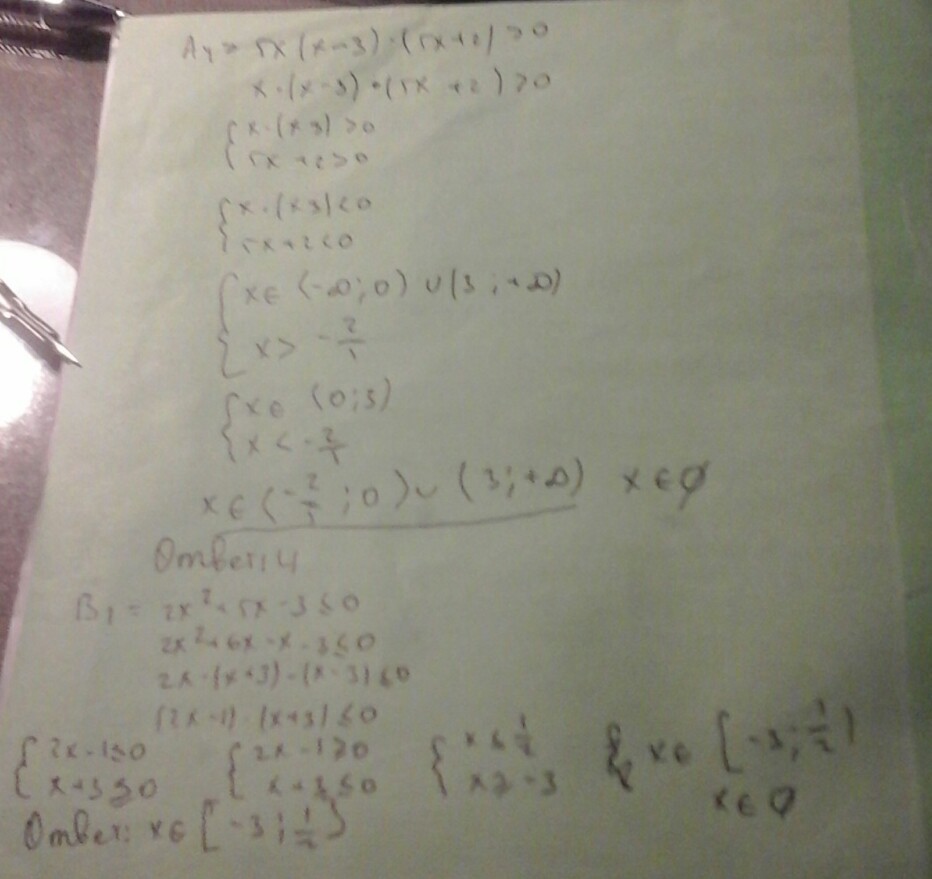 A4 = 5x(x-3)·(5x+2)>0
x·(x-3)·(5x+2)>0
{x·(x-3)>0
{5x+2>0
{x·(x-3)<0
{5x+2<0
{x∈ (-∞;0) ∪ (3;+∞)
{x> -2/5
{x∈ (0;3)
{x< -2/5
x∈(-2/5;0)∪(3;+∞) x∈∅
Ответ: 4
B1 = 2x²+5x-3≤0
2x²+6x-x-3≤0
2x·(x+3)-(x-3)≤0
(2x-1)·(x+3)≤0
{2x-1≤0 {2x-1≥0 {x≤1/2 { x∈ [-3;1/2)
{x+3≥0 {x+3≤0 {x≥-3 x∈∅
Ответ: x∈[-3;1/2]